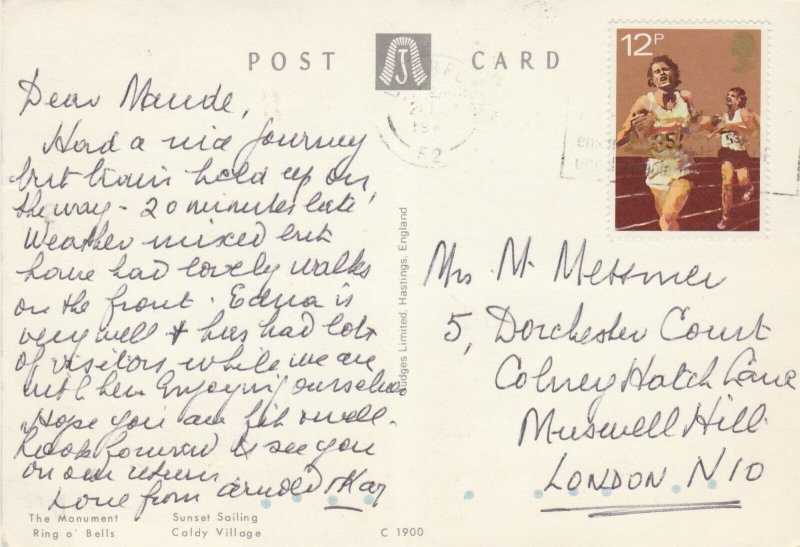 POST CARD
12P
Dear Maude,
Had a nice journey
but train held up on
the way - 20 minutes late!
Weather mixed but
have had lovely walks
on the front. Edna is
very well & has had lots
of visitors while we are
with her. Enjoying ourselves
Hope you are fit & well.
Look forward to see you
on our return
Love from Arnold & Kay
Judges Limited, Hastings, England
Mrs M. Messmer
5, Dorchester Court
Colney Hatch Lane
Muswell Hill
LONDON N10
The Monument Sunset Sailing
Ring o' Bells Caldy Village
C 1900